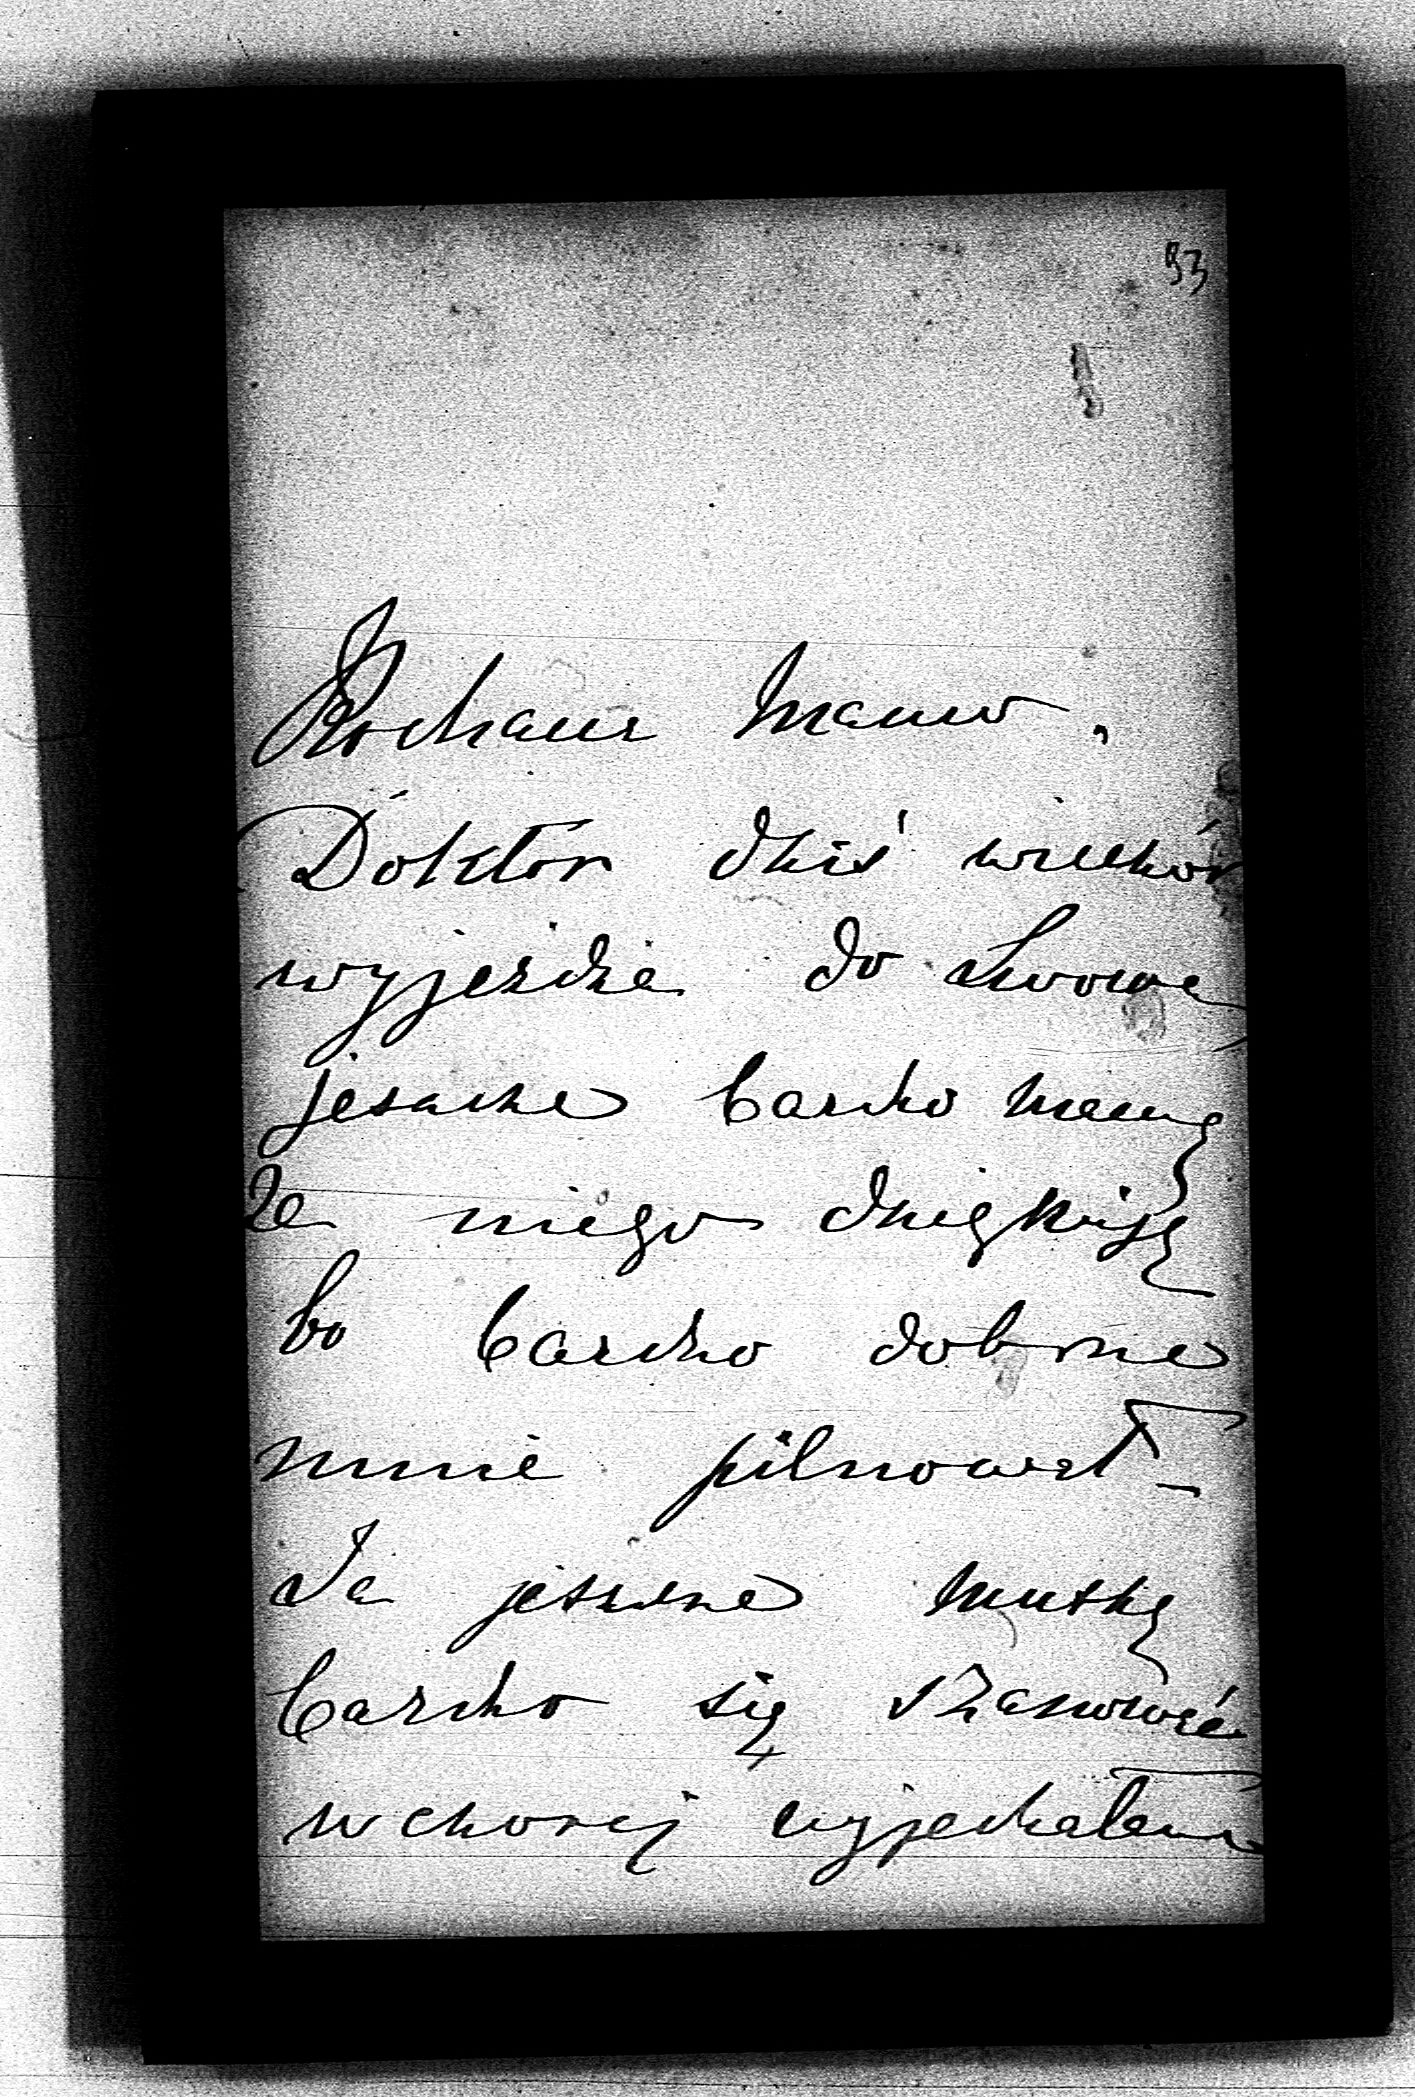 93
Kochana Mamo.
Doktór dziś wieczór
wyjeżdża do Lwowa
jeszcze bardzo Mamę
za niego dziękuję
bo bardzo dobrze
mnie pilnował –
Ja jeszcze muszę
bardzo się szanować
wczoraj wyjechałam